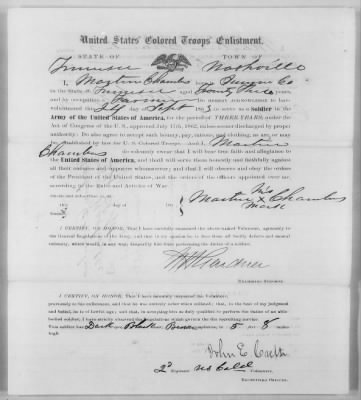 United States' Colored Troops' Enlistment.
STATE OF TOWN OF
Tennessee Nashville
I, Martin Chambers born in Co
in the State of Tennessee aged Twenty years,
and by occupation a Farmer Do hereby acknowledge to have
volunteered this day of Sept 1863 to serve as a Soldier in the
Army of the United States of America, for the period of THREE YEARS, under the
Act of Congress of the U.S., approved July 17th, 1862, unless sooner discharged by proper
authority: Do also agree to accept such bounty, pay, rations, and clothing, as are, or may
be established by law for U. S. Colored Troops. And I, Martin
Chambers do solemnly swear that I will bear true faith and allegiance to
the United States of America, and that I will serve them honestly and faithfully against
all their enemies and opposers whomsoever; and that I will observe and obey the orders
of the President of the United States, and the orders of the officers appointed over me,
according to the Rules and Articles of War.
his
Martin x Chambers
mark
I CERTIFY, ON HONOR, That I have carefully examined the above named Volunteer, agreeably to
the General Regulations of the Army, and that in my opinion he is free from all bodily defects and mental
infirmity, which would, in any way, disqualify him from performing the duties of a soldier.
Gardner
EXAMINING SURGEON.
I CERTIFY, ON HONOR, That I have minutely inspected the Volunteer,
previously to his enlistment, and that he was entirely sober when enlisted; that, to the best of my judgment
and belief, he is of lawful age; and that, in accepting him as duly qualified to perform the duties of an able-
bodied soldier, I have strictly observed the regulations which govern the recruiting service.
This soldier has Dark eyes, Black hair, complexion, is 5 feet 8 inches
high.
John E.
2d Regiment Volunteers,
RECRUITING OFFICER.